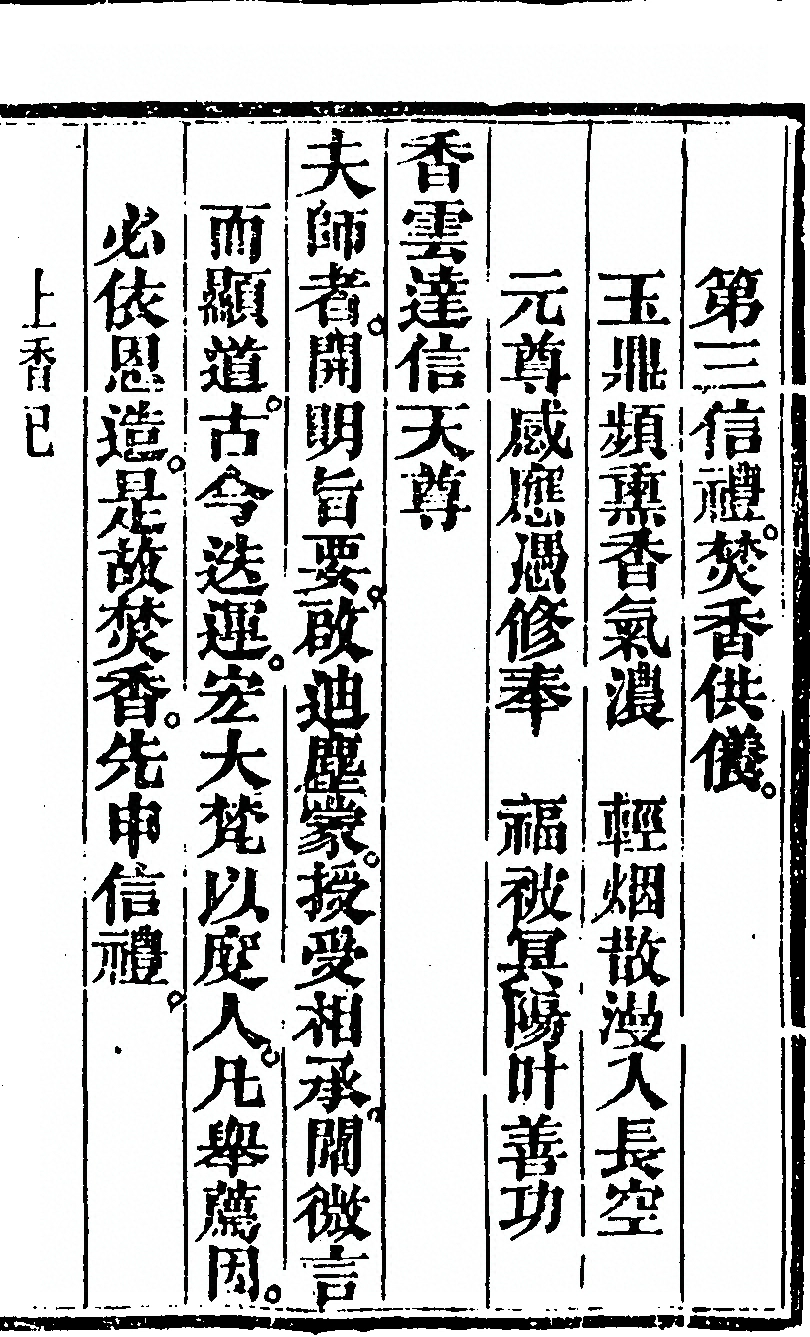 第三信禮。焚香供儀。
玉鼎頻熏香氣濃　輕烟散漫入長空
元尊感應憑修奉　福被冥陽叶善功
香雲達信天尊
夫師者。開明旨要。啟迪塵蒙。授受相承。闡微言
而顯道。古今迭運。宏大梵以度人。凡舉薦因。
必依恩造。是故焚香。先申信禮。
上香已